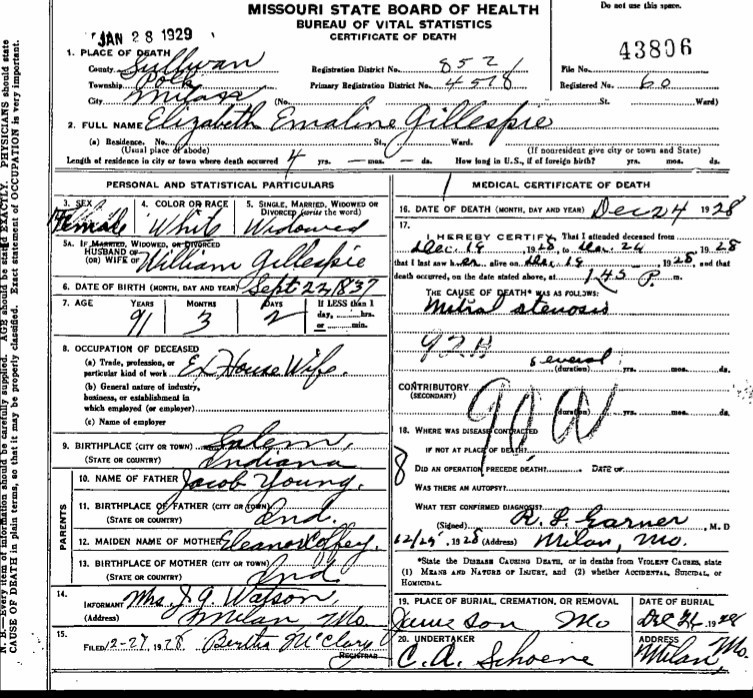 MISSOURI STATE BOARD OF HEALTH
BUREAU OF VITAL STATISTICS
CERTIFICATE OF DEATH
Do not use this space.
JAN 28 1929
43806
1. PLACE OF DEATH
County Sullivan Registration District No. 852 File No.
Township Polk Primary Registration District No. 4518 Registered No. 60
City Milan (No. St. Ward)
2. FULL NAME Elizabeth Emaline Gillespie
(a) Residence. No. St. Ward.
(Usual place of abode) (If nonresident give city or town and State)
Length of residence in city or town where death occurred 4 yrs. — mos. — ds. How long in U.S., if of foreign birth? yrs. mos. ds.
PERSONAL AND STATISTICAL PARTICULARS
3. SEX Female
4. COLOR OR RACE White
5. SINGLE, MARRIED, WIDOWED OR DIVORCED (write the word) Widowed
5A. IF MARRIED, WIDOWED, OR DIVORCED
HUSBAND OF
(OR) WIFE OF William Gillespie
6. DATE OF BIRTH (MONTH, DAY AND YEAR) Sept 22, 1837
7. AGE YEARS MONTHS DAYS If LESS than 1
day, hrs.
or min.
91 3 2
8. OCCUPATION OF DECEASED
(a) Trade, profession, or
particular kind of work Ex House Wife.
(b) General nature of industry,
business, or establishment in
which employed (or employer)
(c) Name of employer
9. BIRTHPLACE (CITY OR TOWN) Salem,
(STATE OR COUNTRY) Indiana
PARENTS
10. NAME OF FATHER Jacob Young.
11. BIRTHPLACE OF FATHER (CITY OR TOWN)
(STATE OR COUNTRY) Ind.
12. MAIDEN NAME OF MOTHER Eleanor Coffey.
13. BIRTHPLACE OF MOTHER (CITY OR TOWN)
(STATE OR COUNTRY) Ind
14.
INFORMANT Mrs. J. A. Watson,
(Address) Milan, Mo.
15.
FILED 12-27, 1928 Bertha McClary
REGISTRAR
MEDICAL CERTIFICATE OF DEATH
16. DATE OF DEATH (MONTH, DAY AND YEAR) Dec 24 1928
17.
I HEREBY CERTIFY, That I attended deceased from
Dec. 19, 1928, to Dec. 24, 1928
that I last saw her alive on Dec. 19, 1928, and that
death occurred, on the date stated above, at 1 45 P. m.
THE CAUSE OF DEATH* WAS AS FOLLOWS:
Mitral stenosis
92B
several
(duration) yrs. mos. ds.
CONTRIBUTORY
(SECONDARY)
90a
(duration) yrs. mos. ds.
18. WHERE WAS DISEASE CONTRACTED
IF NOT AT PLACE OF DEATH?
8
DID AN OPERATION PRECEDE DEATH? DATE OF
WAS THERE AN AUTOPSY?
WHAT TEST CONFIRMED DIAGNOSIS?
(Signed) R. L. Garner, M. D
12/25, 1928 (Address) Milan, Mo.
*State the DISEASE CAUSING DEATH, or in deaths from VIOLENT CAUSES, state
(1) MEANS AND NATURE OF INJURY, and (2) whether ACCIDENTAL, SUICIDAL, or
HOMICIDAL.
19. PLACE OF BURIAL, CREMATION, OR REMOVAL DATE OF BURIAL
Jameson Mo Dec 26, 1928
20. UNDERTAKER ADDRESS
C. A. Schoene Milan, Mo.
N. B.—Every item of information should be carefully supplied. AGE should be stated EXACTLY. PHYSICIANS should state
CAUSE OF DEATH in plain terms, so that it may be properly classified. Exact statement of OCCUPATION is very important.